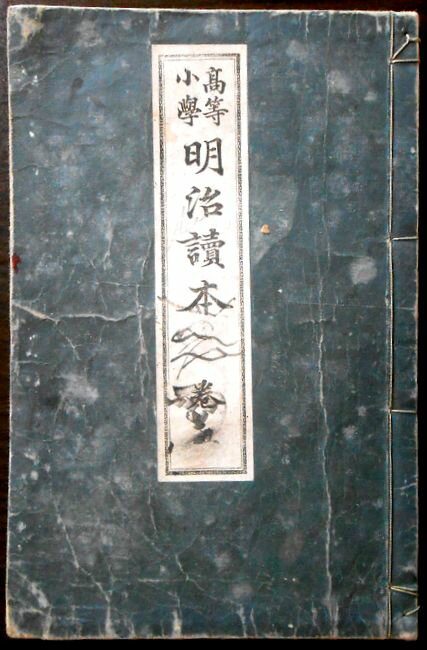 高等
小學
明治讀本
卷